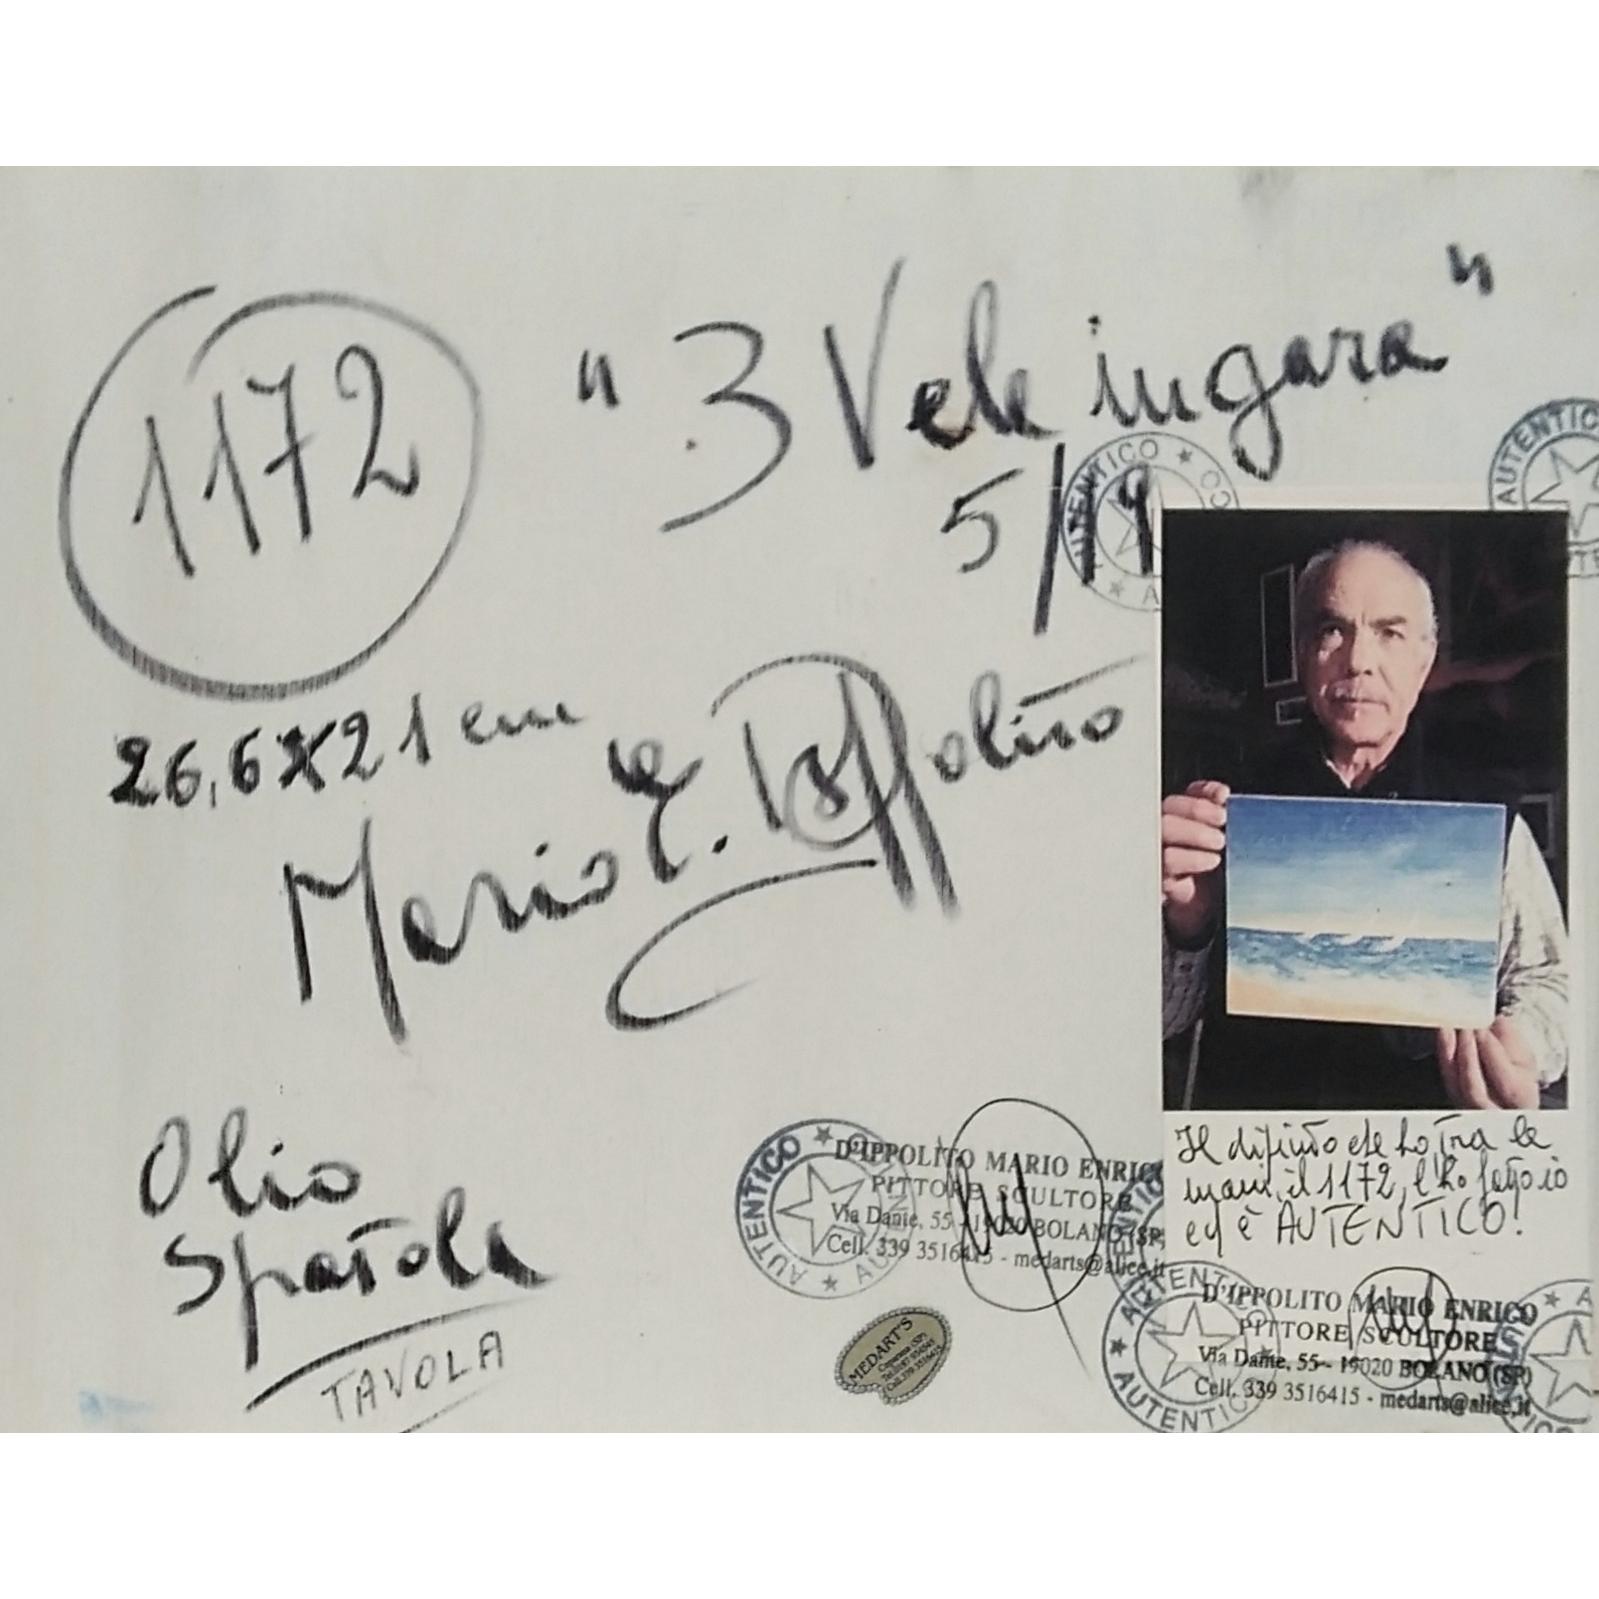 1172
"3 Vele in gara"
5/19
26,6x21 cm
Mario E. D'Ippolito
Olio
Spatola
TAVOLA
AUTENTICO ★
AUTENTICO
D'IPPOLITO MARIO ENRICO
PITTORE SCULTORE
Via Dante, 55 - 19020 BOLANO (SP)
Cell. 339 3516415 - medarts@alice.it
AUTENTICO ★ AUTENTICO
MEDART'S
Il dipinto che ho tra le
mani, il 1172, l'ho fatto io
ed è AUTENTICO!
D'IPPOLITO MARIO ENRICO
PITTORE SCULTORE
Via Dante, 55 - 19020 BOLANO (SP)
Cell. 339 3516415 - medarts@alice.it
AUTENTICO ★ AUTENTICO